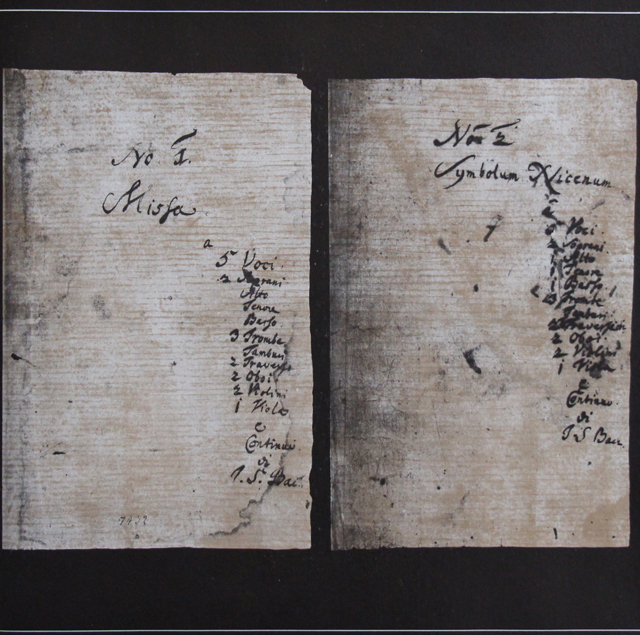 No 1.
Missa
a
5 Voci
2 Soprani
Alto
Tenore
Basso
3 Trombe
Tamburi
2 Traversi
2 Oboi
2 Violini
1 Viola
e
Continuo
di
J. S. Bac
No 2
Symbolum Nicenum
5 Voci
2 Soprani
1 Alto
1 Tenore
1 Basso
3 Trombe
Tamburi
2 Traversieri
2 Oboi
2 Violini
1 Viola
e
Continuo
di
J. S. Bac